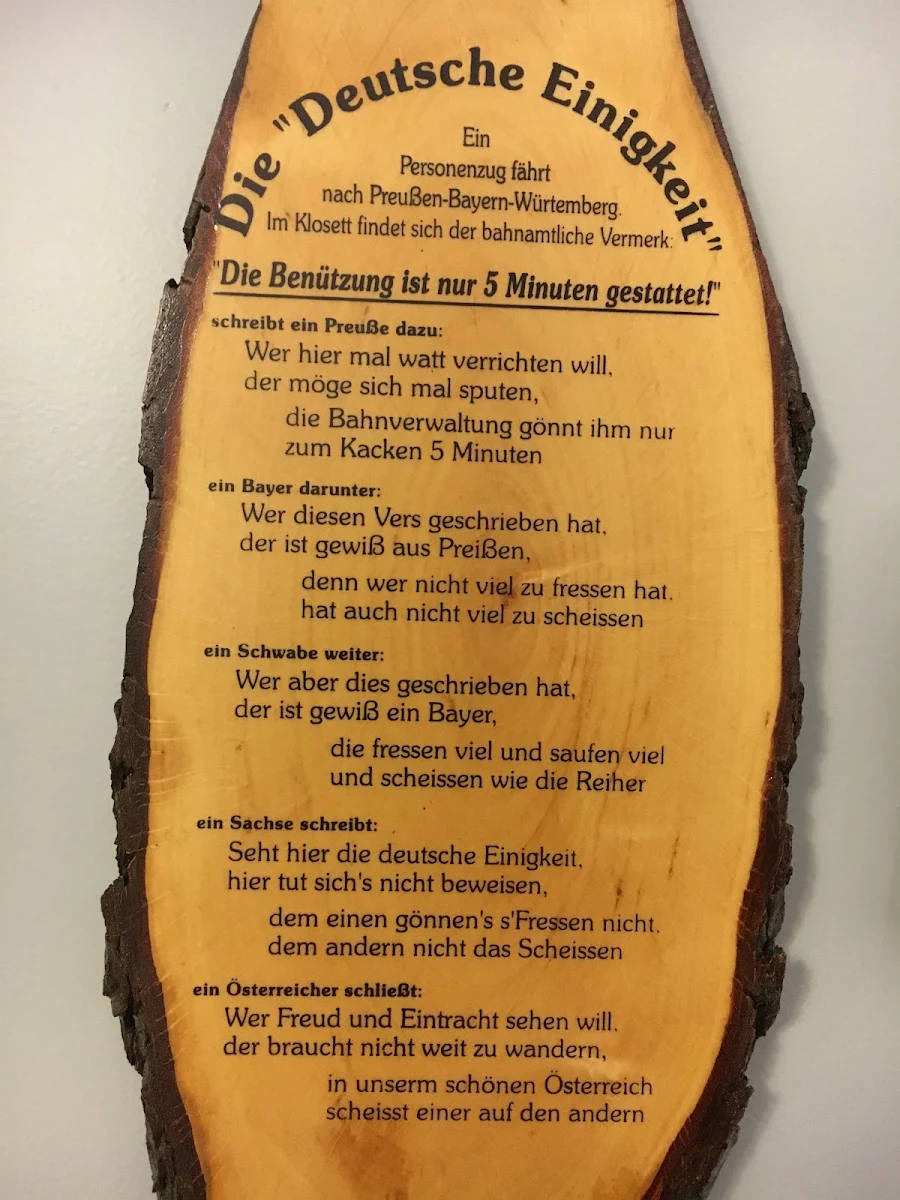 Die "Deutsche Einigkeit"
Ein
Personenzug fährt
nach Preußen-Bayern-Würtemberg.
Im Klosett findet sich der bahnamtliche Vermerk:
"Die Benützung ist nur 5 Minuten gestattet!"
schreibt ein Preuße dazu:
Wer hier mal watt verrichten will,
der möge sich mal sputen,
die Bahnverwaltung gönnt ihm nur
zum Kacken 5 Minuten
ein Bayer darunter:
Wer diesen Vers geschrieben hat,
der ist gewiß aus Preißen,
denn wer nicht viel zu fressen hat.
hat auch nicht viel zu scheissen
ein Schwabe weiter:
Wer aber dies geschrieben hat,
der ist gewiß ein Bayer,
die fressen viel und saufen viel
und scheissen wie die Reiher
ein Sachse schreibt:
Seht hier die deutsche Einigkeit,
hier tut sich's nicht beweisen,
dem einen gönnen's s'Fressen nicht.
dem andern nicht das Scheissen
ein Österreicher schließt:
Wer Freud und Eintracht sehen will,
der braucht nicht weit zu wandern,
in unserm schönen Österreich
scheisst einer auf den andern